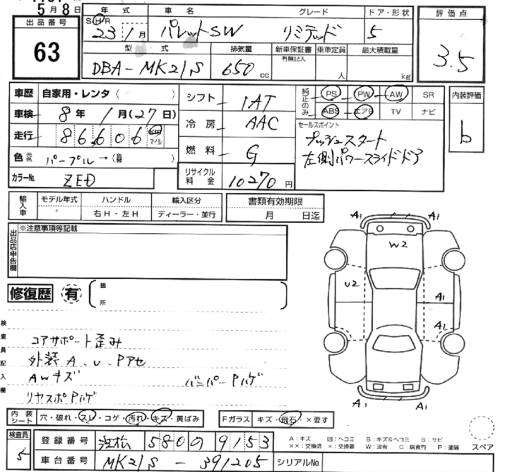 5月8日
出品番号
63
年式 車名 グレード ドア・形状
S/H/R 23/1月 パレットSW リミテッド 5
型式 排気量 新車保証書 有無記入 乗車定員 最大積載量
DBA-MK21S 650cc 人 kg
評価点
3.5
内装評価
b
車歴 自家用・レンタ( )
車検 8年1月(27日)
走行 86,606 km マイル
色 パープル→
カラーNo. ZED
シフト 1AT
冷房 AAC
燃料 G
リサイクル料金 10270円
純正のみ PS PW AW SR
ABS エアB TV ナビ
セールスポイント
プッシュスタート
左側パワースライドドア
輸入車 モデル年式 ハンドル 輸入区分
年 右H・左H ディーラー・並行
書類有効期限
月 日迄
出品店申告欄
※注意事項等記載
修復歴 有 箇所
検査員記入欄
コアサポート歪み
外装A、U、Pアセ
AWキズ バンパーPハゲ
リヤスポPハゲ
A1 A1
W2
U2
A1
A1
A1 A1
スペア
内装シート 穴・破れ・スレ・コゲ・汚れ・キズ・黄ばみ
Fガラス キズ・飛石・×要す
検査員 5
登録番号 浜松 580 の 9153
車台番号 MK21S-391205
シリアルNo.
A:キズ U:ヘコミ B:キズ&ヘコミ S:サビ
××:交換済 ×:交換要 W:波有 C:腐食有 P:塗装